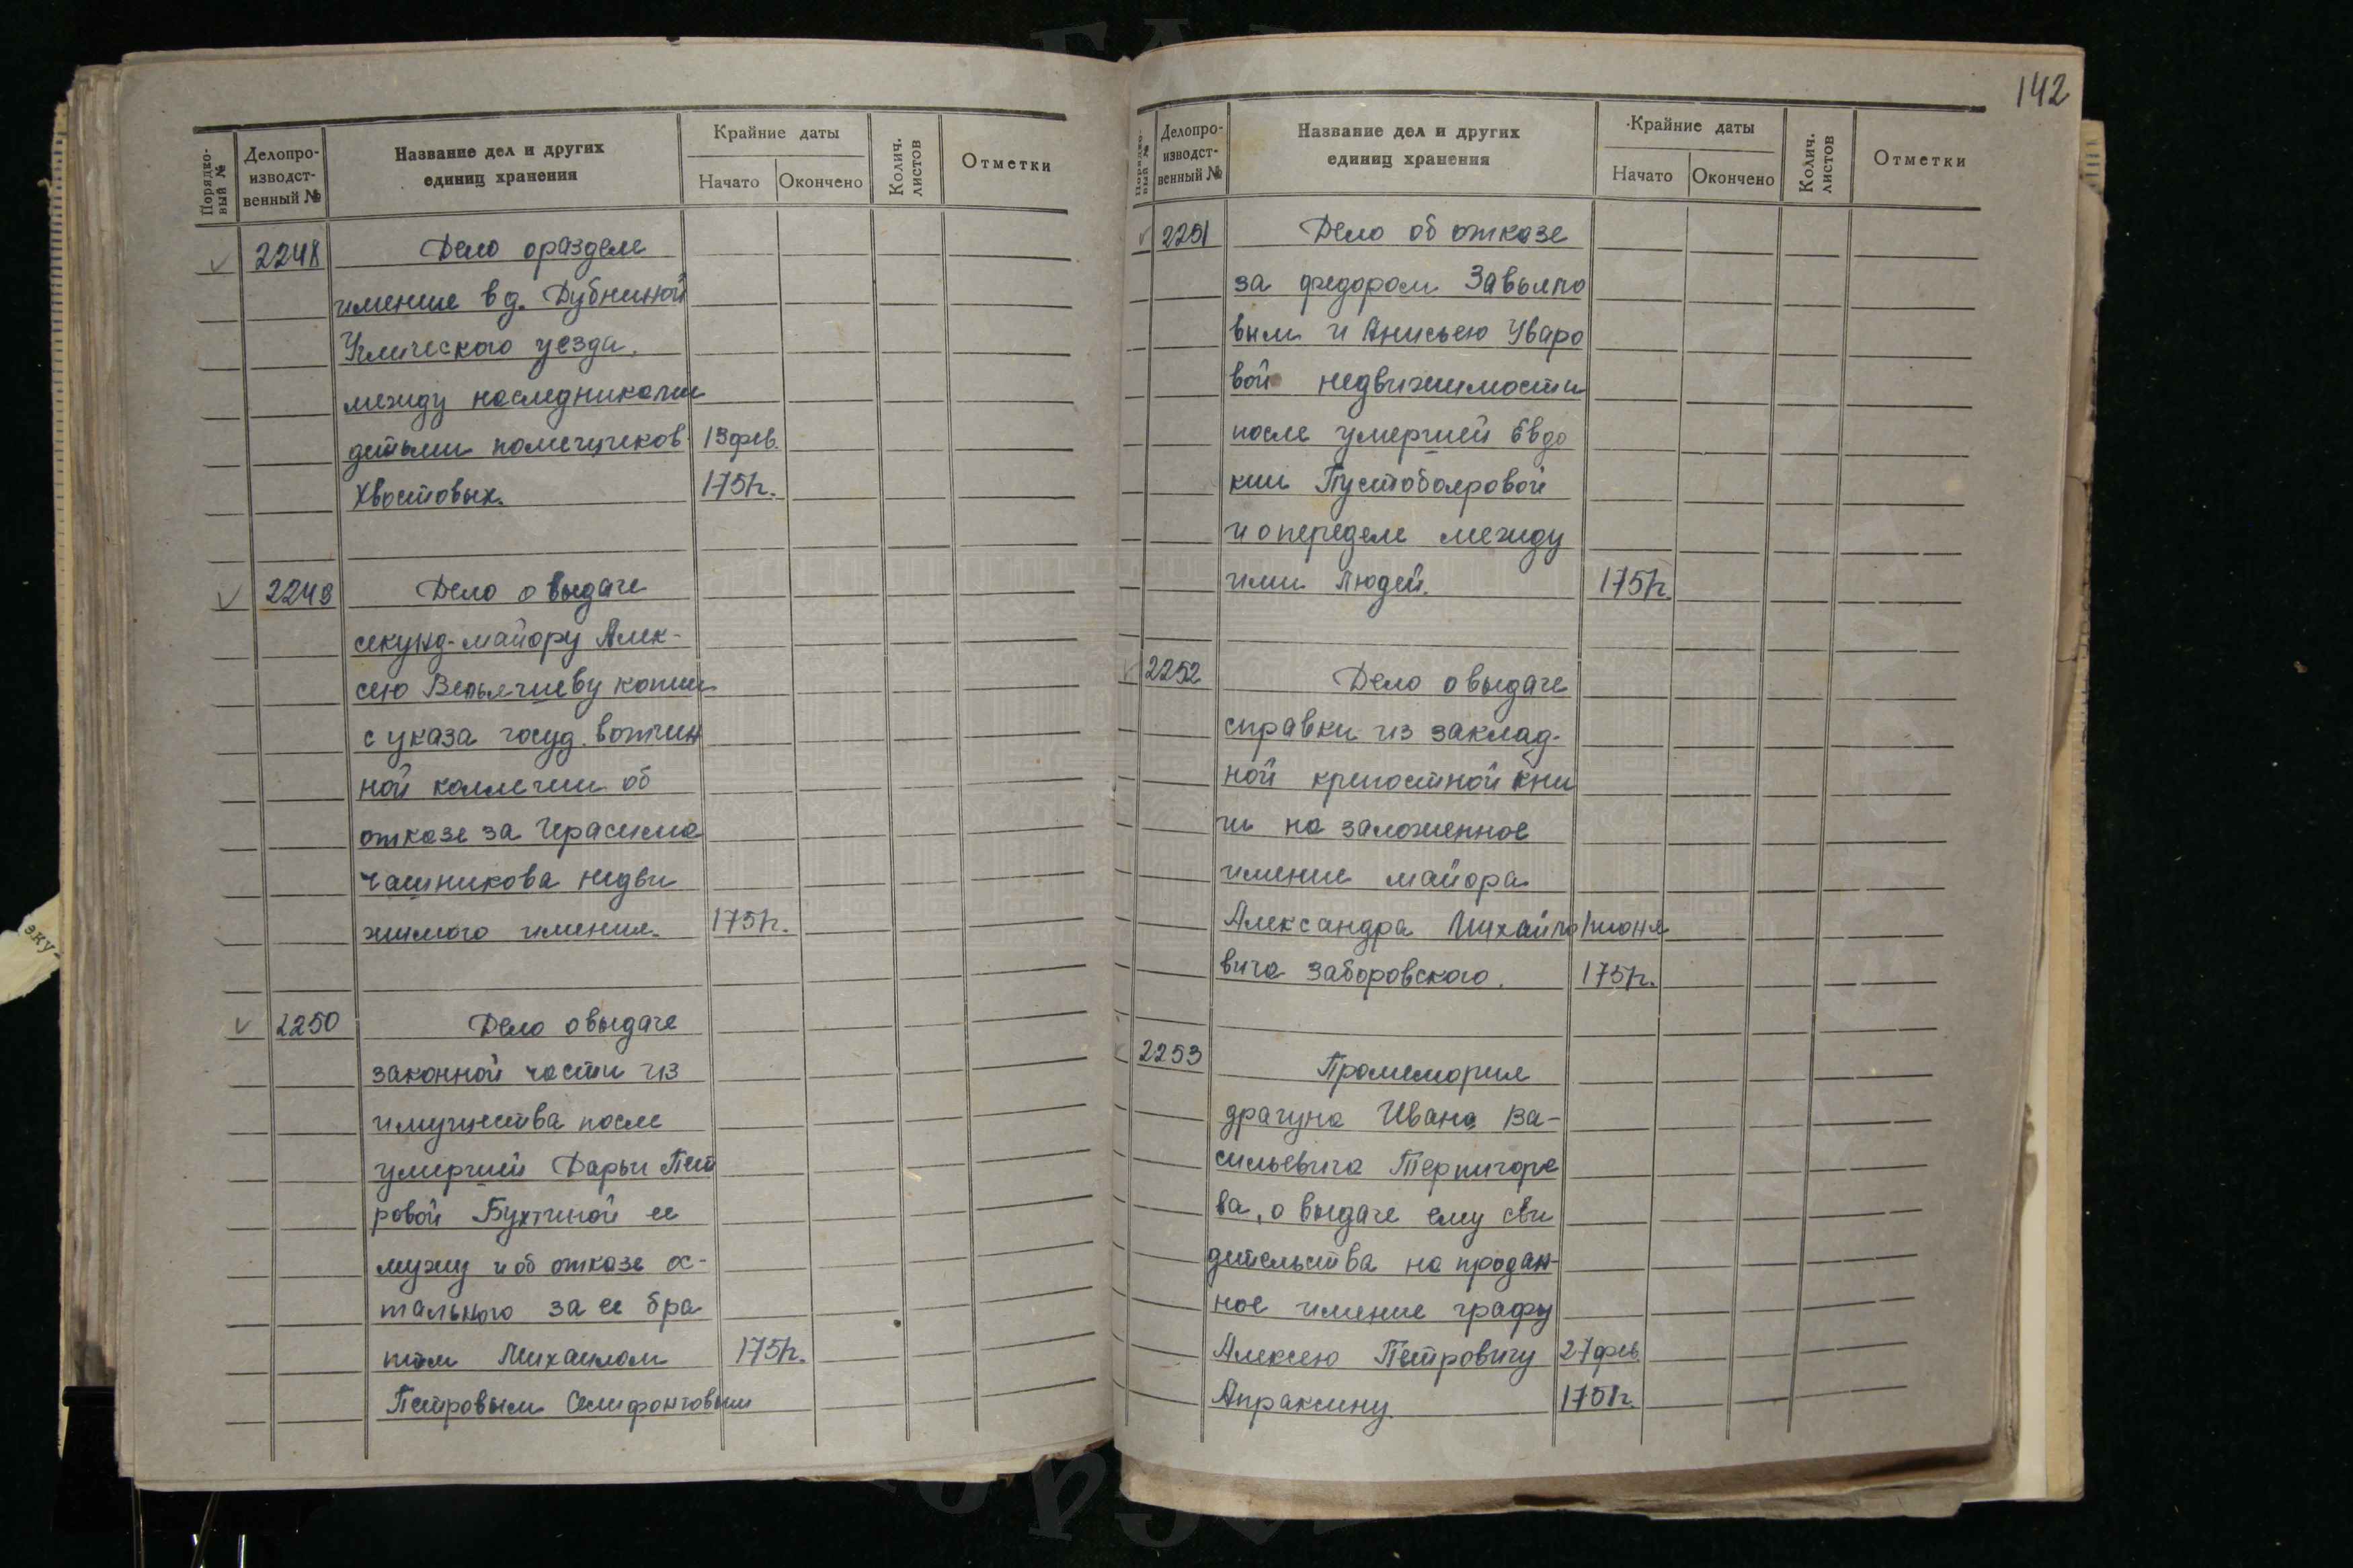 Порядко-
вый №
Делопро-
изводст-
венный №
Название дел и других
единиц хранения
Крайние даты
Начато
Окончено
Колич.
листов
Отметки
2248 Дело о разделе
имение в д. Дубниной
Углического уезда,
между наследниками
детьми помещиков 13 фев.
Хвостовых. 1751г.
2249 Дело о выдаче
секунд-майору Алек-
сею Вельячшеву копии
с указа госуд. вотчин
ной коллегии об
отказе за Герасима
Чашникова недви
жимого имения. 1751г.
2250 Дело о выдаче
законной части из
имущества после
умершей Дарьи Пет
ровой Бухтиной ее
мужу и об отказе ос-
тального за ее бра
том Михаилом 1751г.
Петровым Селифонтовым
142
Порядко-
вый №
Делопро-
изводст-
венный №
Название дел и других
единиц хранения
Крайние даты
Начато
Окончено
Колич.
листов
Отметки
2251 Дело об отказе
за федором Завьяло
вым и Анисьею Уваро
вой недвижимости
после умершей Евдо
кии Пустобояровой
и о переделе между
ими людей. 1751г.
2252 Дело о выдаче
справки из заклад-
ной крепостной кни
ги на заложенное
имение майора
Александра Михайло июня
вича Заборовского. 1751г.
2253 Промемория
драгуна Ивана Ва-
сильевича Терпигоре
ва, о выдаче ему сви
детельства на продан-
ное имение графу
Алексею Петровичу 27 фев.
Апраксину. 1751г.